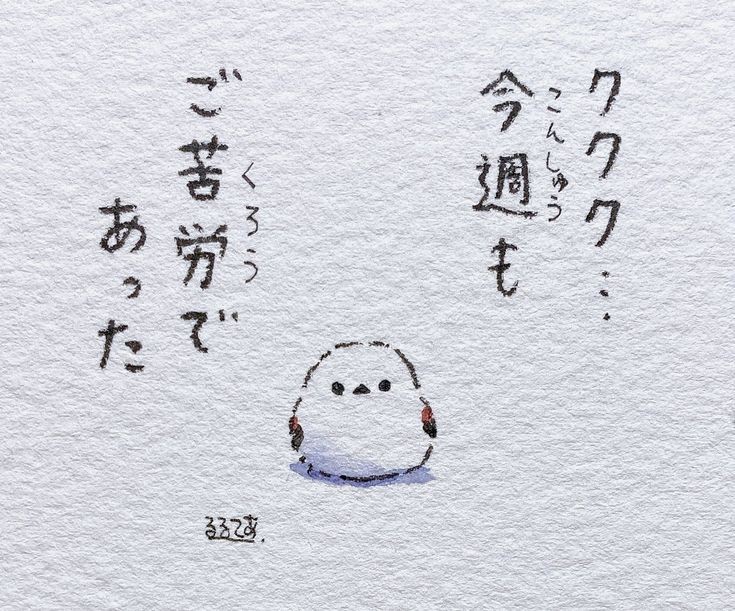 ククク…
今週も
こんしゅう
ご苦労で
くろう
あった
るるてあ.